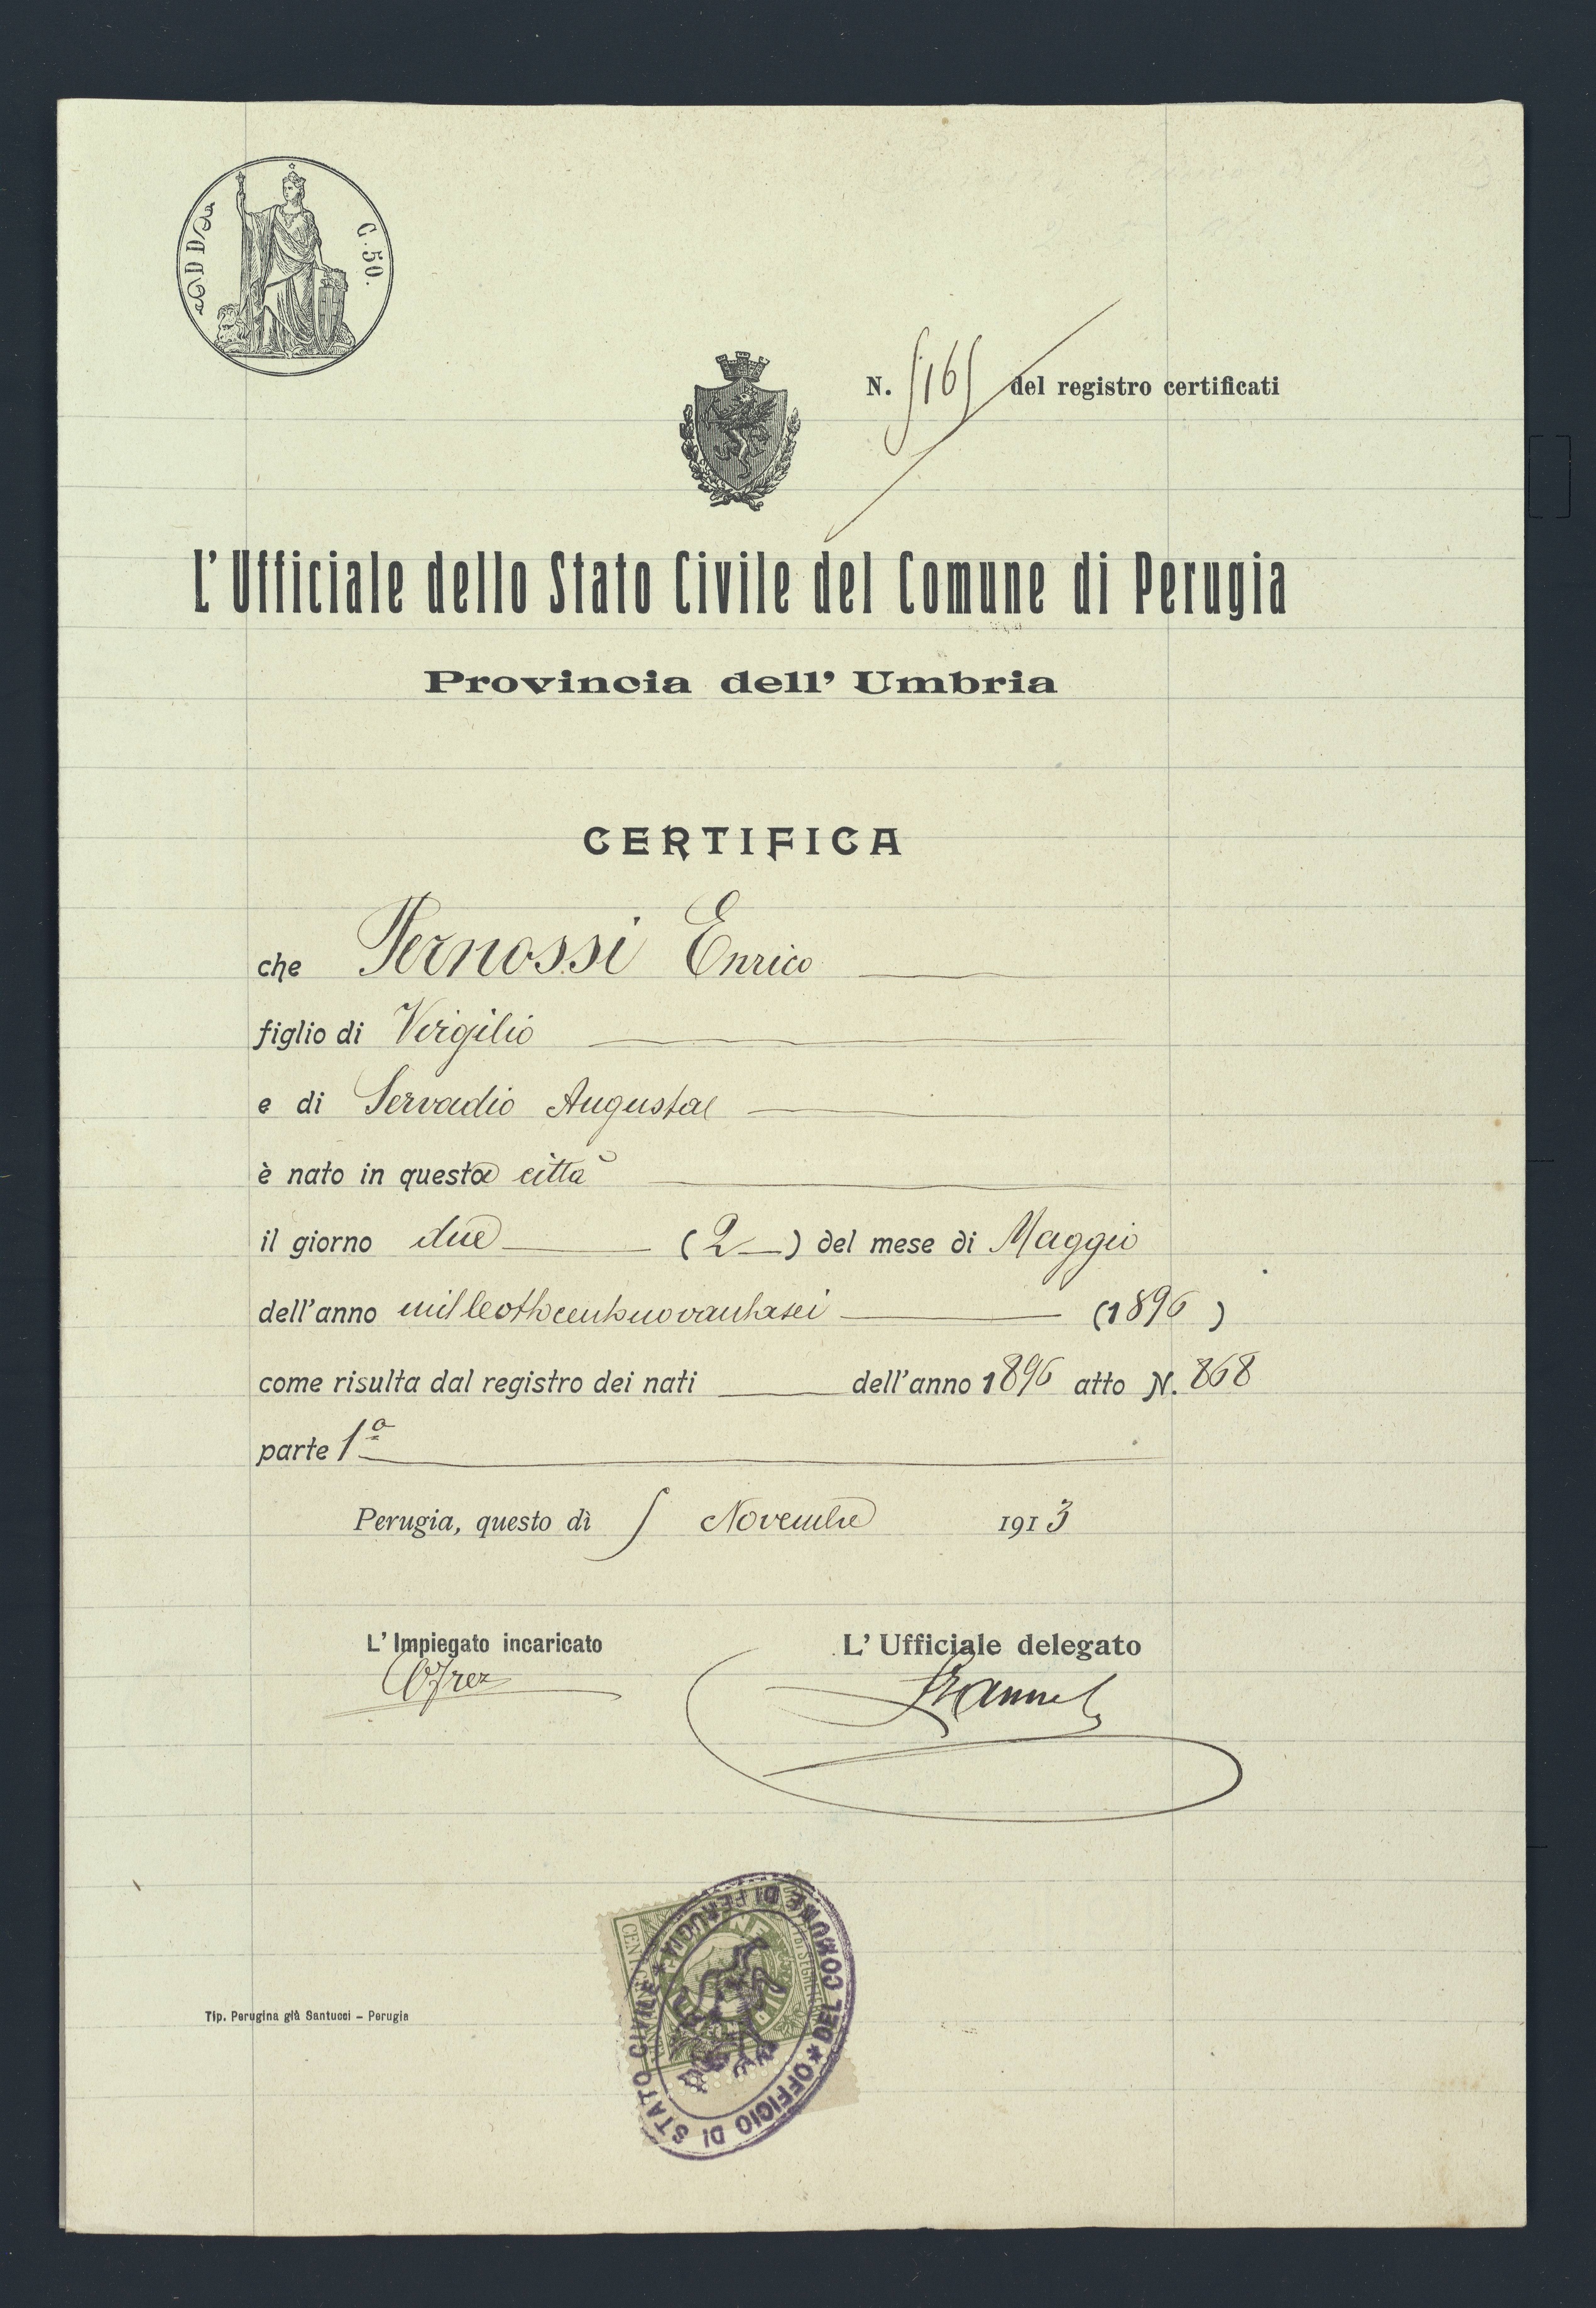 C. 50.
N. 5165 del registro certificati
L' Ufficiale dello Stato Civile del Comune di Perugia
Provincia dell' Umbria
CERTIFICA
che Pernossi Enrico
figlio di Virgilio
e di Servadio Augusta
è nato in questa città
il giorno due (2) del mese di Maggio
dell'anno milleottocentonovantasei (1896)
come risulta dal registro dei nati dell'anno 1896 atto N. 868
parte 1ª
Perugia, questo dì 5 Novembre 1913
L' Impiegato incaricato L' Ufficiale delegato
OFFICIO DI STATO CIVILE * DEL COMUNE DI PERUGIA *
CENT
Tip. Perugina già Santucci – Perugia